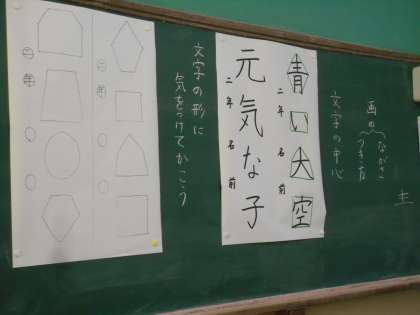 主
画の
ながさ
つき方
文字の中心
青い大空
二年 名前
元気な子
二年 名前
文字の形に
気をつけてかこう
二年
二年